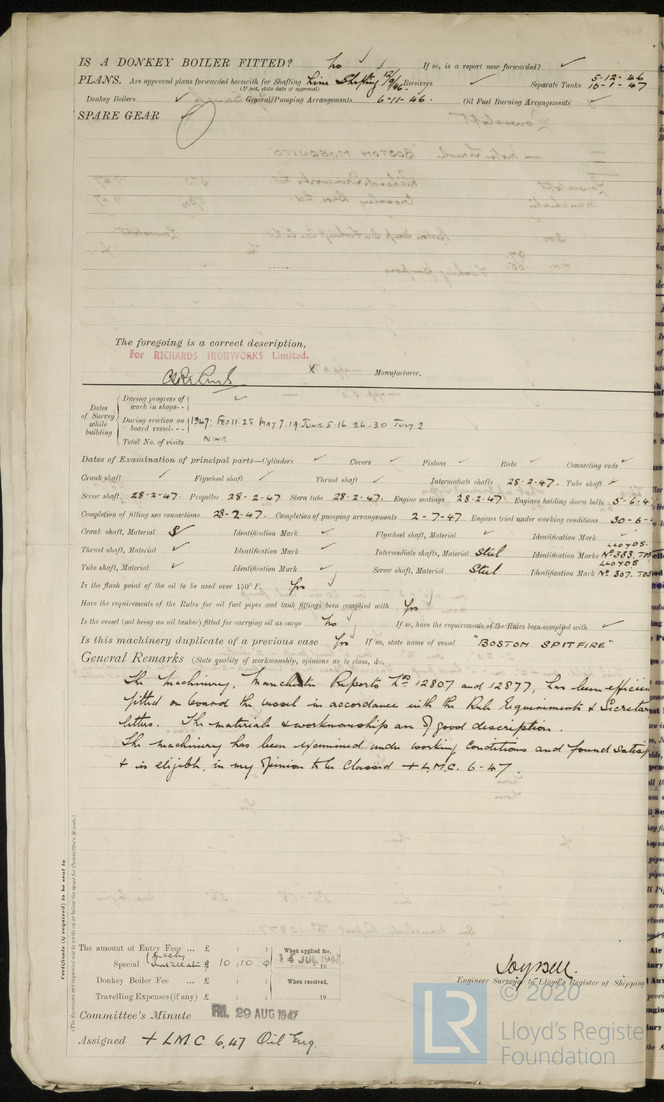 IS A DONKEY BOILER FITTED? no ✓ If so, is a report now forwarded? ✓
PLANS. Are approved plans forwarded herewith for Shafting Line Shafting Receivers ✓ Separate Tanks 5-12-46
(If not, state date of approval) 10-1-47
Donkey Boilers ✓ General Pumping Arrangements 6-11-46. Oil Fuel Burning Arrangements ✓
SPARE GEAR
The foregoing is a correct description,
For RICHARDS IRONWORKS Limited.
X Manufacturer.
Dates of Survey while building
During progress of work in shops - - ✓
During erection on board vessel - - - 1947: FEB 11. 25 MAY 7. 19 JUNE 5. 16. 26. 30 JULY 2
Total No. of visits NINE
Dates of Examination of principal parts—Cylinders ✓ Covers ✓ Pistons ✓ Rods ✓ Connecting rods ✓
Crank shaft ✓ Flywheel shaft ✓ Thrust shaft ✓ Intermediate shafts 28-2-47. Tube shaft ✓
Screw shaft 28-2-47. Propeller 28-2-47 Stern tube 28-2-47. Engine seatings 28-2-47. Engines holding down bolts 5-6-4
Completion of fitting sea connections 28-2-47. Completion of pumping arrangements 2-7-47 Engines tried under working conditions 30-6-
Crank shaft, Material ✓ Identification Mark ✓ Flywheel shaft, Material ✓ Identification Mark ✓
Thrust shaft, Material ✓ Identification Mark ✓ Intermediate shafts, Material Steel Identification Marks LLOYDS Nº 383. TDS
Tube shaft, Material ✓ Identification Mark ✓ Screw shaft, Material Steel Identification Mark LLOYDS Nº 387. TDS
Is the flash point of the oil to be used over 150° F. Yes ✓
Have the requirements of the Rules for oil fuel pipes and tank fittings been complied with Yes ✓
Is the vessel (not being an oil tanker) fitted for carrying oil as cargo no ✓ If so, have the requirements of the Rules been complied with ✓
Is this machinery duplicate of a previous case Yes ✓ If so, state name of vessel "BOSTON SPITFIRE"
General Remarks (State quality of workmanship, opinions as to class, &c.
The Machinery, Manchester Reports Nos 12807 and 12877, has been efficien
fitted on board the vessel in accordance with the Rule Requirements & Secretar
letters. The materials & workmanship are of good description.
The machinery has been examined under working conditions and found satisf
& is eligible, in my opinion to be Classed + LMC. 6-47.
Certificate (if required) to be sent to
(The Surveyors are requested not to write on or below the space for Committee's Minute.)
The amount of Entry Fee ... £ : : When applied for,
Special £ 10 : 10 : 0 14 JUL 1947 19
Donkey Boiler Fee ... £ : : When received,
Travelling Expenses (if any) £ : : 19
Engineer Surveyor to Lloyd's Register of Shipping
Committee's Minute FRI. 29 AUG 1947
Assigned + LMC 6,47 Oil Eng.
© 2020
LR Lloyd's Registe
Foundation